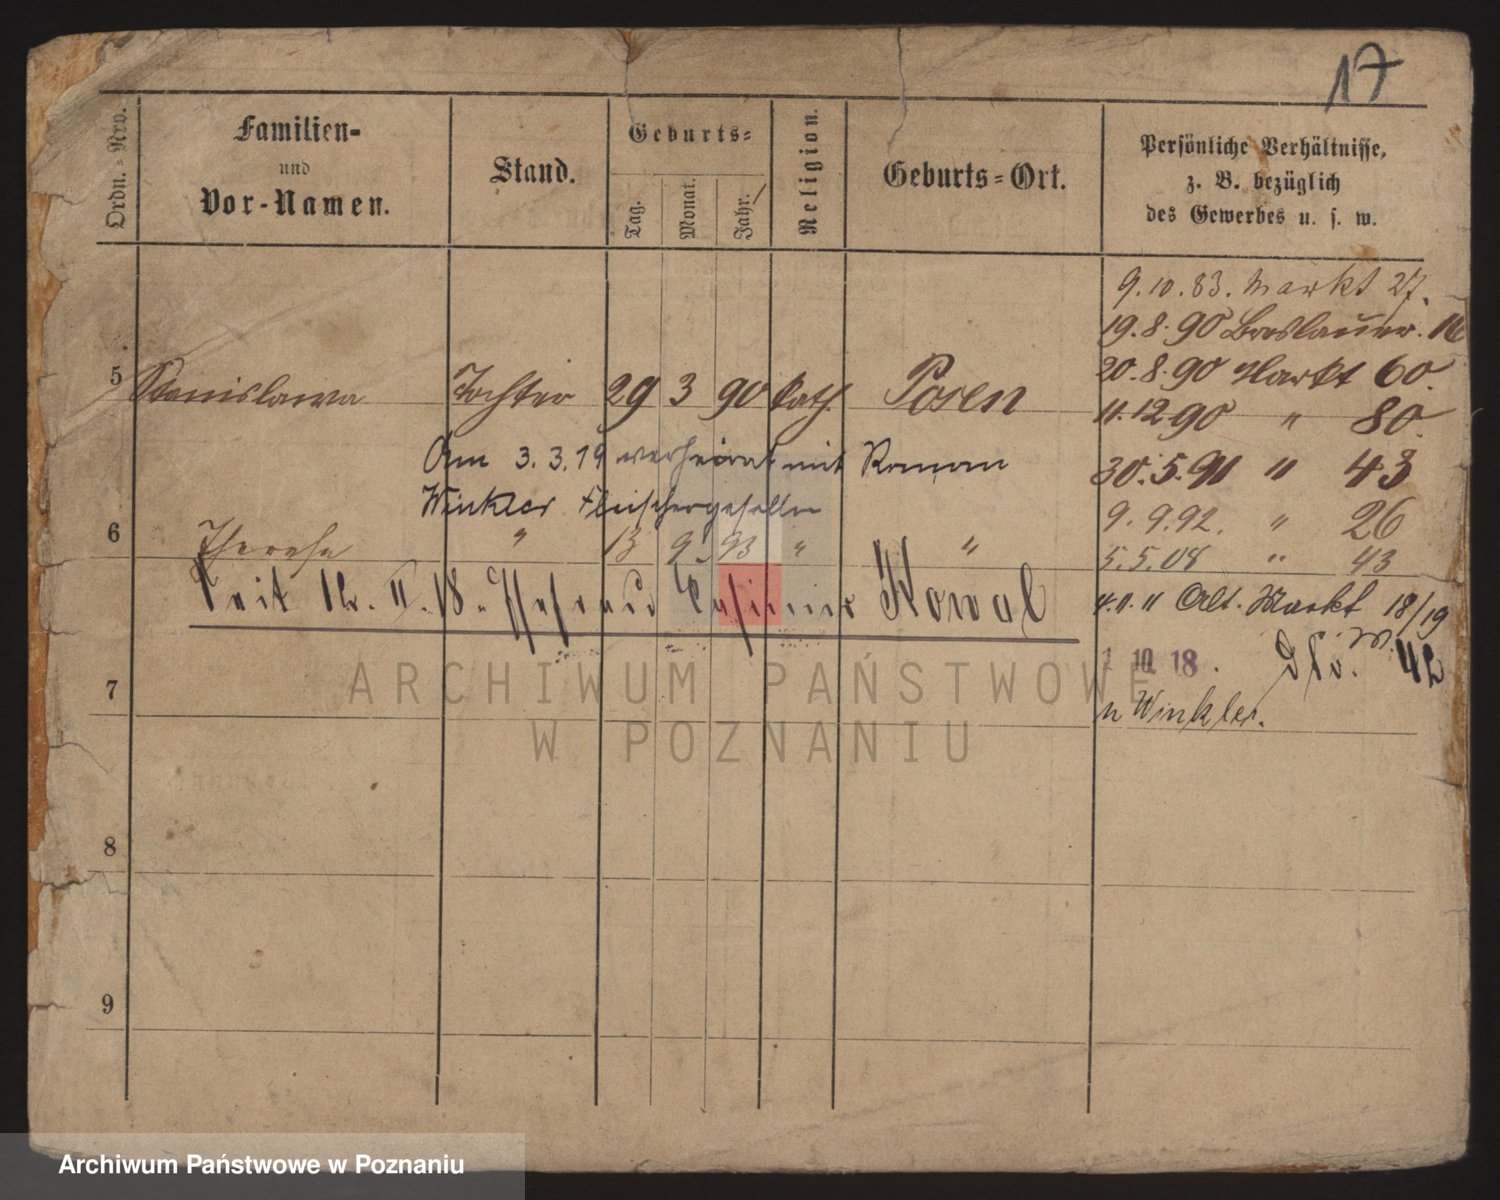 17
Ordn.-Nro.
Familien-
und
Vor-Namen.
Stand.
Geburts-
Tag.
Monat.
Jahr.
Religion.
Geburts-Ort.
Persönliche Verhältnisse,
z. B. bezüglich
des Gewerbes u. s. w.
9.10.83. Markt 27.
19.8.90 Breslauer. 16
20.8.90 Markt 60.
5 Stanislawa Tochter 29 3 90 kath. Posen
11.12.90 " 80.
Am 3.3.19 verheirat mit Roman
30.5.91 " 43
Winkler Fleischergeselle
9.9.92. " 26
6 Therese " 13 9 93 " "
5.5.08 " 43
Seit 12. 11. 18. Ehefrau Casimir Kowal
4.11.11 Alt. Markt 18/19
1 10 18. 42
7
n Winkler.
ARCHIWUM PAŃSTWOWE
W POZNANIU
8
9
Archiwum Państwowe w Poznaniu